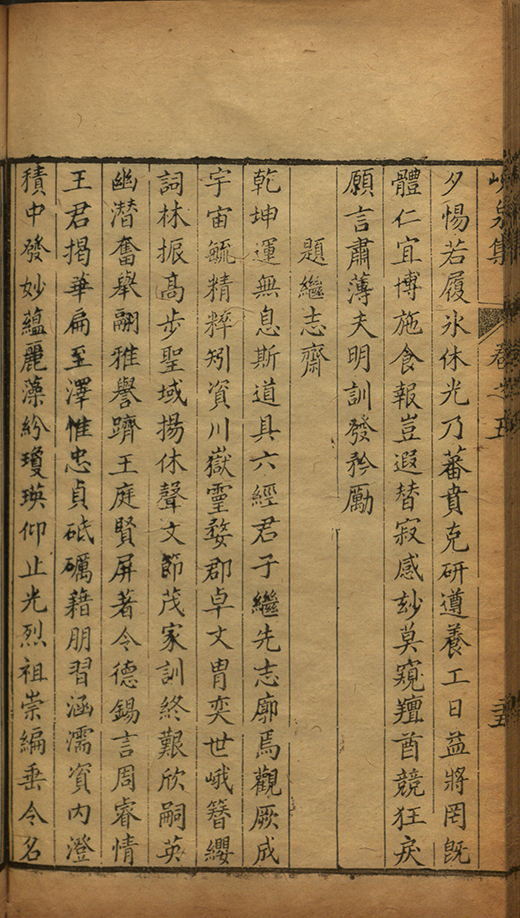 峴泉集 卷之五
夕惕若履氷休光乃蕃賁克研遵養工日益將罔旣
體仁宜博施食報豈遐替寂感玅莫窺羶酋競狂戾
願言肅薄夫明訓發矜勵
題繼志齋
乾坤運無息斯道具六經君子繼先志廓焉觀厥成
宇宙毓精粹矧資川嶽靈婺郡卓文冑奕世峨簪纓
詞林振高步聖域揚休聲文節茂家訓終艱欣嗣英
幽潜奮舉翮雅譽躋王庭賢屏著令德錫言周睿情
王君揭華扁至澤惟忠貞砥礪藉朋習涵濡資内澄
積中發妙蘊麗藻紛瓊瑛仰止光烈祖崇編垂令名